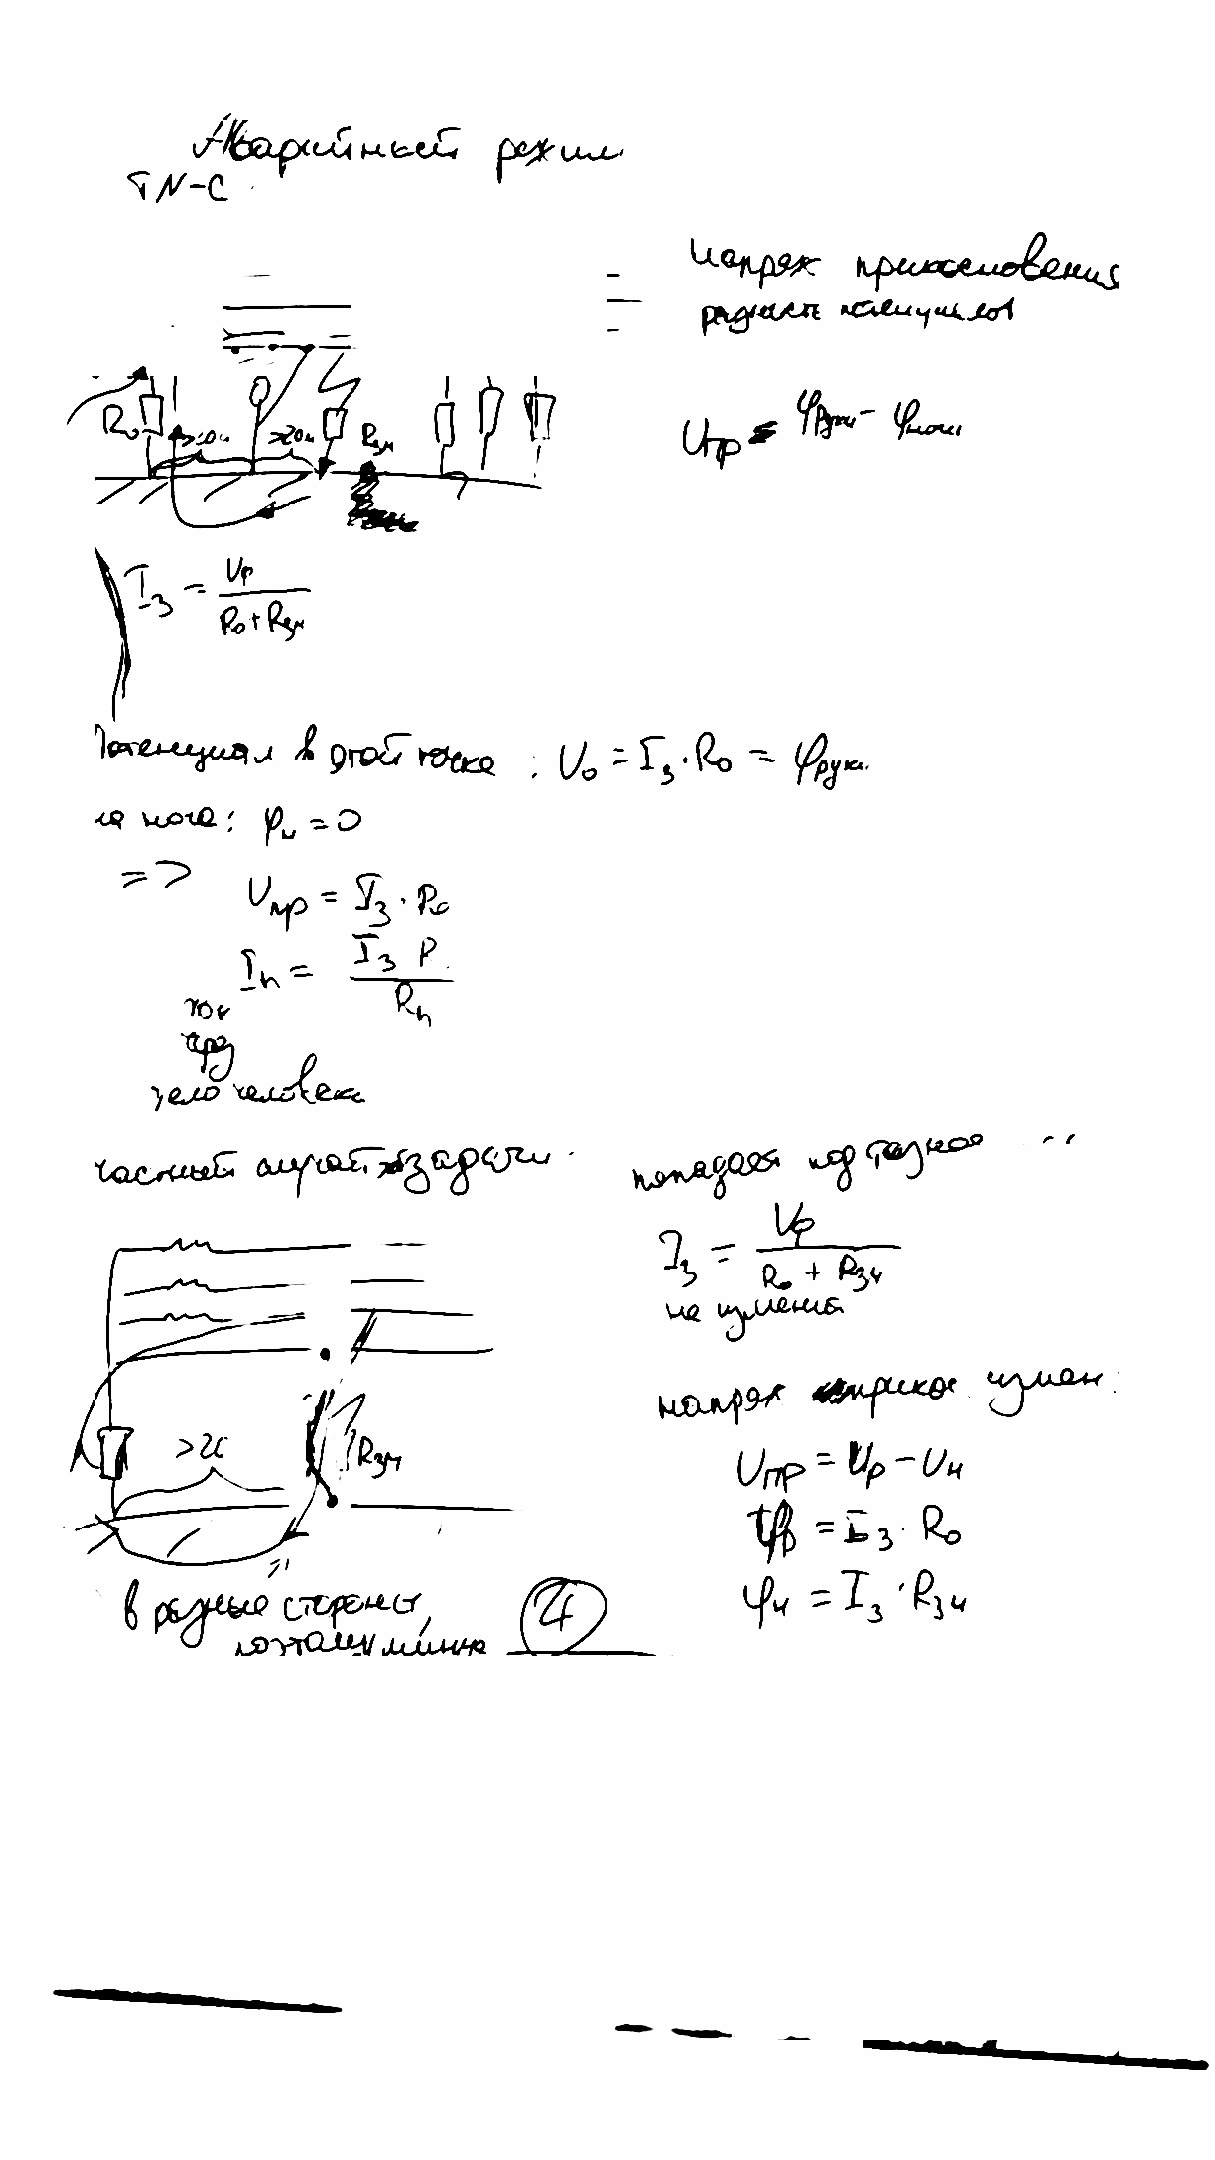 Аварийный режим
TN-C
напряж прикосновения
разность потенциалов
Uпр = φруки - φноги
R₀ >20м >20м Rзм
Iз = Uф / (R₀ + Rзм)
Потенциал в этой точке : U₀ = Iз · R₀ = φруки
на ноге: φн = 0
=>
Uпр = Iз · R₀
Ih = Iз R / Rh
ток
через
тело человека
частный случай задачи
>20
Rзм
в разные стороны,
поэтому минус
4
попадает под разное ..
Iз = Uф / (R₀ + Rзм)
не изменит
напряж прикос измен
Uпр = Uр - Uн
φр = Iз · R₀
φн = Iз · Rзм